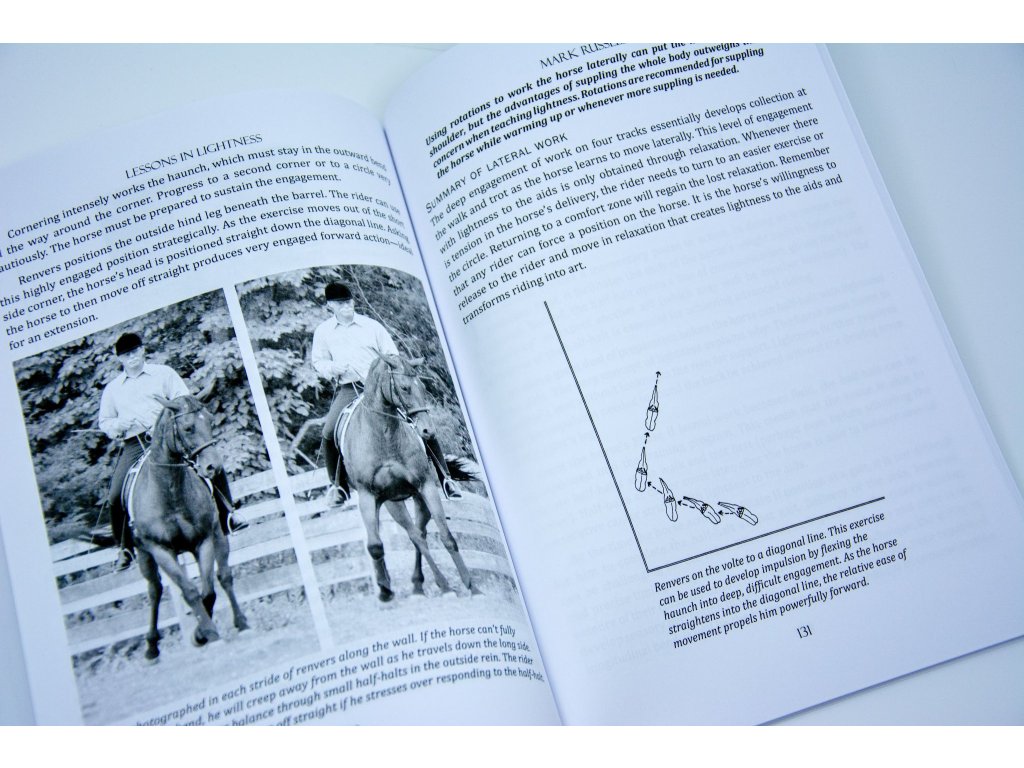 LESSONS IN LIGHTNESS
Cornering intensely works the haunch, which must stay in the outward bend
the way around the corner. Progress to a second corner or to a circle very
autiously. The horse must be prepared to sustain the engagement.
Renvers positions the outside hind leg beneath the barrel. The rider can use
this highly engaged position strategically. As the exercise moves out of the
side corner, the horse's head is positioned straight down the diagonal line. Asking
the horse to then move off straight produces very engaged forward action—
for an extension.
otographed in each stride of renvers along the wall. If the horse can't fully
and, he will creep away from the wall as he travels down the long side.
balance through small half-halts in the outside rein. The rider
off straight if he stresses over responding to the half-halt.
MARK RUSSEL
Using rotations to work the horse laterally can put the
shoulder, but the advantages of suppling the whole body outweighs
concern when teaching lightness. Rotations are recommended for suppling
the horse while warming up or whenever more suppling is needed.
SUMMARY OF LATERAL WORK
The deep engagement of work on four tracks essentially develops collection at
the walk and trot as the horse learns to move laterally. This level of engagement
with lightness to the aids is only obtained through relaxation. Whenever there
is tension in the horse's delivery, the rider needs to turn to an easier exercise or
the circle. Returning to a comfort zone will regain the lost relaxation. Remember
that any rider can force a position on the horse. It is the horse's willingness to
release to the rider and move in relaxation that creates lightness to the aids and
transforms riding into art.
Renvers on the volte to a diagonal line. This exercise
can be used to develop impulsion by flexing the
haunch into deep, difficult engagement. As the horse
straightens into the diagonal line, the relative ease of
movement propels him powerfully forward.
131